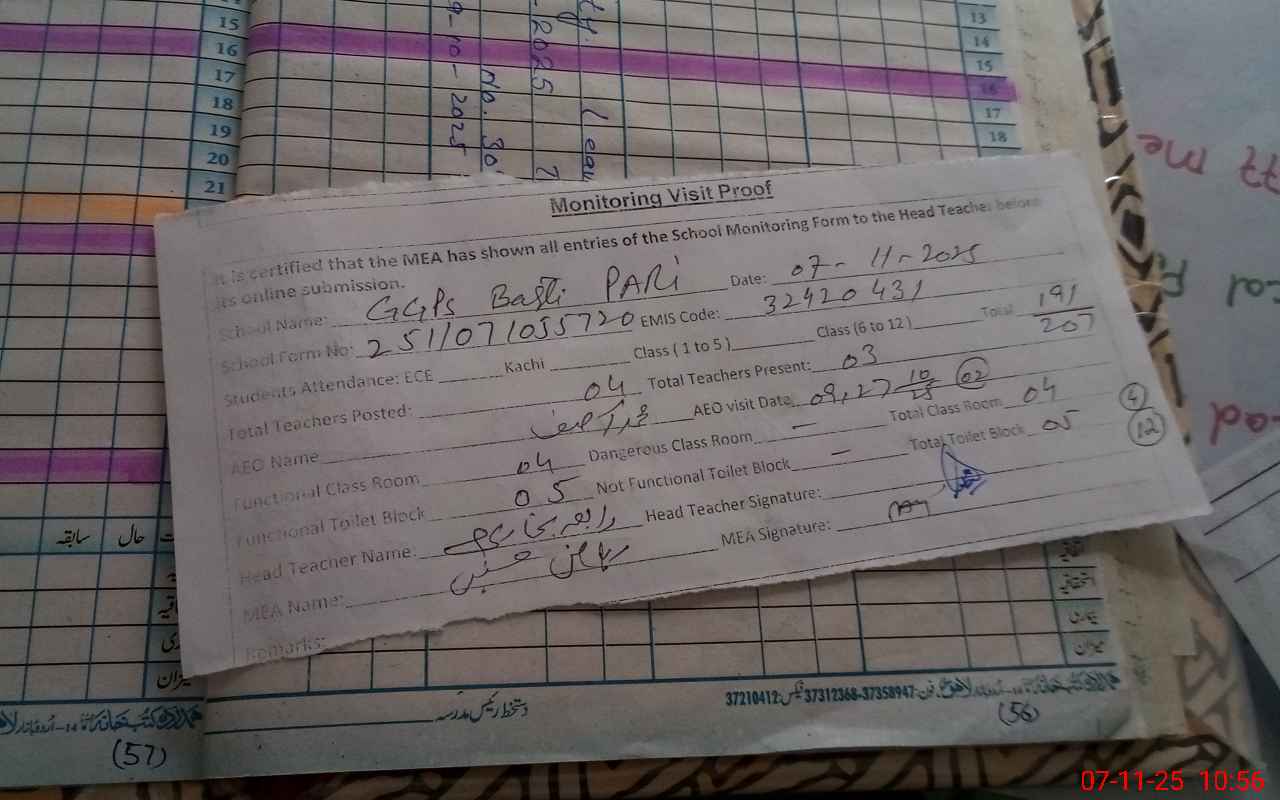 15
16
17
18
19
20
21
13
14
15
16
17
18
2025
No. 30
9-10-2025
Monitoring Visit Proof
It is certified that the MEA has shown all entries of the School Monitoring Form to the Head Teacher before
its online submission.
School Name: GGPS Basti PARI Date: 07-11-2025
School Form No: 2511071055720 EMIS Code: 32420431
Students Attendance: ECE Kachi Class ( 1 to 5 ) Class (6 to 12 ) Total 191/207
Total Teachers Posted: 04 Total Teachers Present: 03
AEO Name AEO visit Date 09,27 10/25 (02)
Functional Class Room 04 Dangerous Class Room - Total Class Room 04 (4)
Functional Toilet Block 05 Not Functional Toilet Block - Total Toilet Block 05 (12)
Head Teacher Name: Head Teacher Signature:
MEA Name: MEA Signature:
Remarks:
حال سابقہ
میزان
میزان
دستخط رئیس مدرسہ
فون: 37358947-37312368 فیکس: 37210412
(56)
(57)
me
07-11-25 10:56